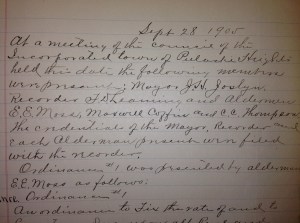 Sept 28 1905
At a meeting of the council of the
Incorporated town of Pulaski Heights
held this date the following members
were present; Mayor J.H. Joslyn,
Recorder F.D. Leaming and Aldermen
E.E. Moss, Maxwell Coffin and C.C. Thompson
The credential of the Mayor, Recorder and
each Alderman present were filed
with the recorder.
Ordinance #1 was presented by alderman
E.E. Moss as follows:
Ordinance #1
An ordinance to fix the rate of and to